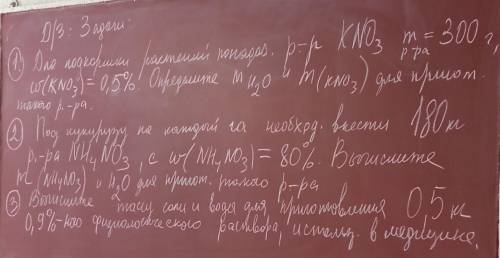 Д/з: Задачи:
① Для подкормки растений понадоб. р-р KNO₃ m р-ра = 300 г
ω(KNO₃) = 0,5%. Определите m H₂O и m(KNO₃) для пригот.
такого р.-ра.
② Под кукурузу на каждый га необход. внести 180 кг
р.-ра NH₄NO₃, с ω(NH₄NO₃) = 80%. Вычислите
m (NH₄NO₃) и H₂O для пригот. такого р-ра
③ Вычислите массу соли и воды для приготовления 0,5 кг
0,9%-ного физиологического раствора, использ. в медицине.